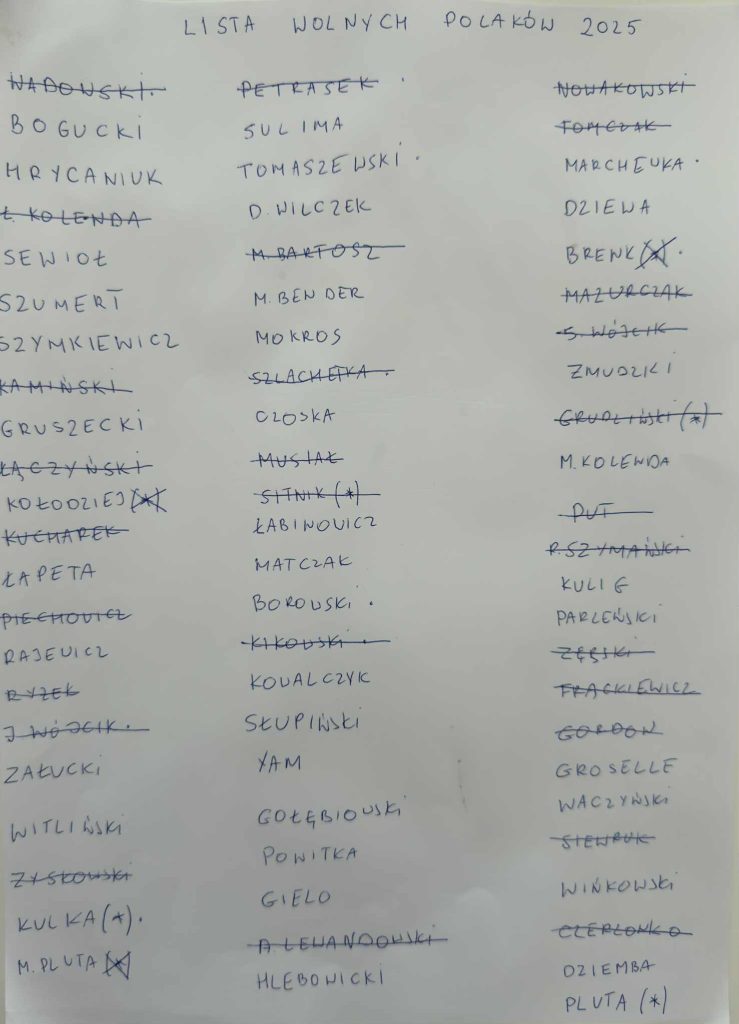 LISTA WOLNYCH POLAKÓW 2025
WADOWSKI.
BOGUCKI
HRYCANIUK
Ł. KOLENDA
SEWIOŁ
SZUMERT
SZYMKIEWICZ
KAMIŃSKI
GRUSZECKI
ŁĄCZYŃSKI
KOŁODZIEJ (*)
KUCHAREK
ŁAPETA
PIECHOWICZ
RAJEWICZ
RYŻEK
J. WÓJCIK.
ZAŁUCKI
WITLIŃSKI
ZYSKOWSKI
KULKA (*).
M. PLUTA (*)
PETRASEK .
SULIMA
TOMASZEWSKI .
D. WILCZEK
M. BARTOSZ
M. BENDER
MOKROS
SZLACHETKA .
CZOSKA
MUSIAŁ
SITNIK (*)
ŁABINOWICZ
MATCZAK
BOROWSKI .
KIKOWSKI .
KOWALCZYK
SŁUPIŃSKI
YAM
GOŁĘBIOWSKI
POWITKA
GIELO
A. LEWANDOWSKI
HLEBOWICKI
NOWAKOWSKI
TOMCZAK
MARCHEWKA .
DZIEWA
BRENK (*) .
MAZURCZAK
S. WÓJCIK
ŻMUDZKI
GRUDZIŃSKI (*)
M. KOLENDA
PUT
P. SZYMAŃSKI
KULIG
PARLEŃSKI
ZĘBSKI
FRĄCKIEWICZ
GORDON
GROSELLE
WACZYŃSKI
SIEWRUK
WIŃKOWSKI
CZERLONKO
DZIEMBA
PLUTA (*)